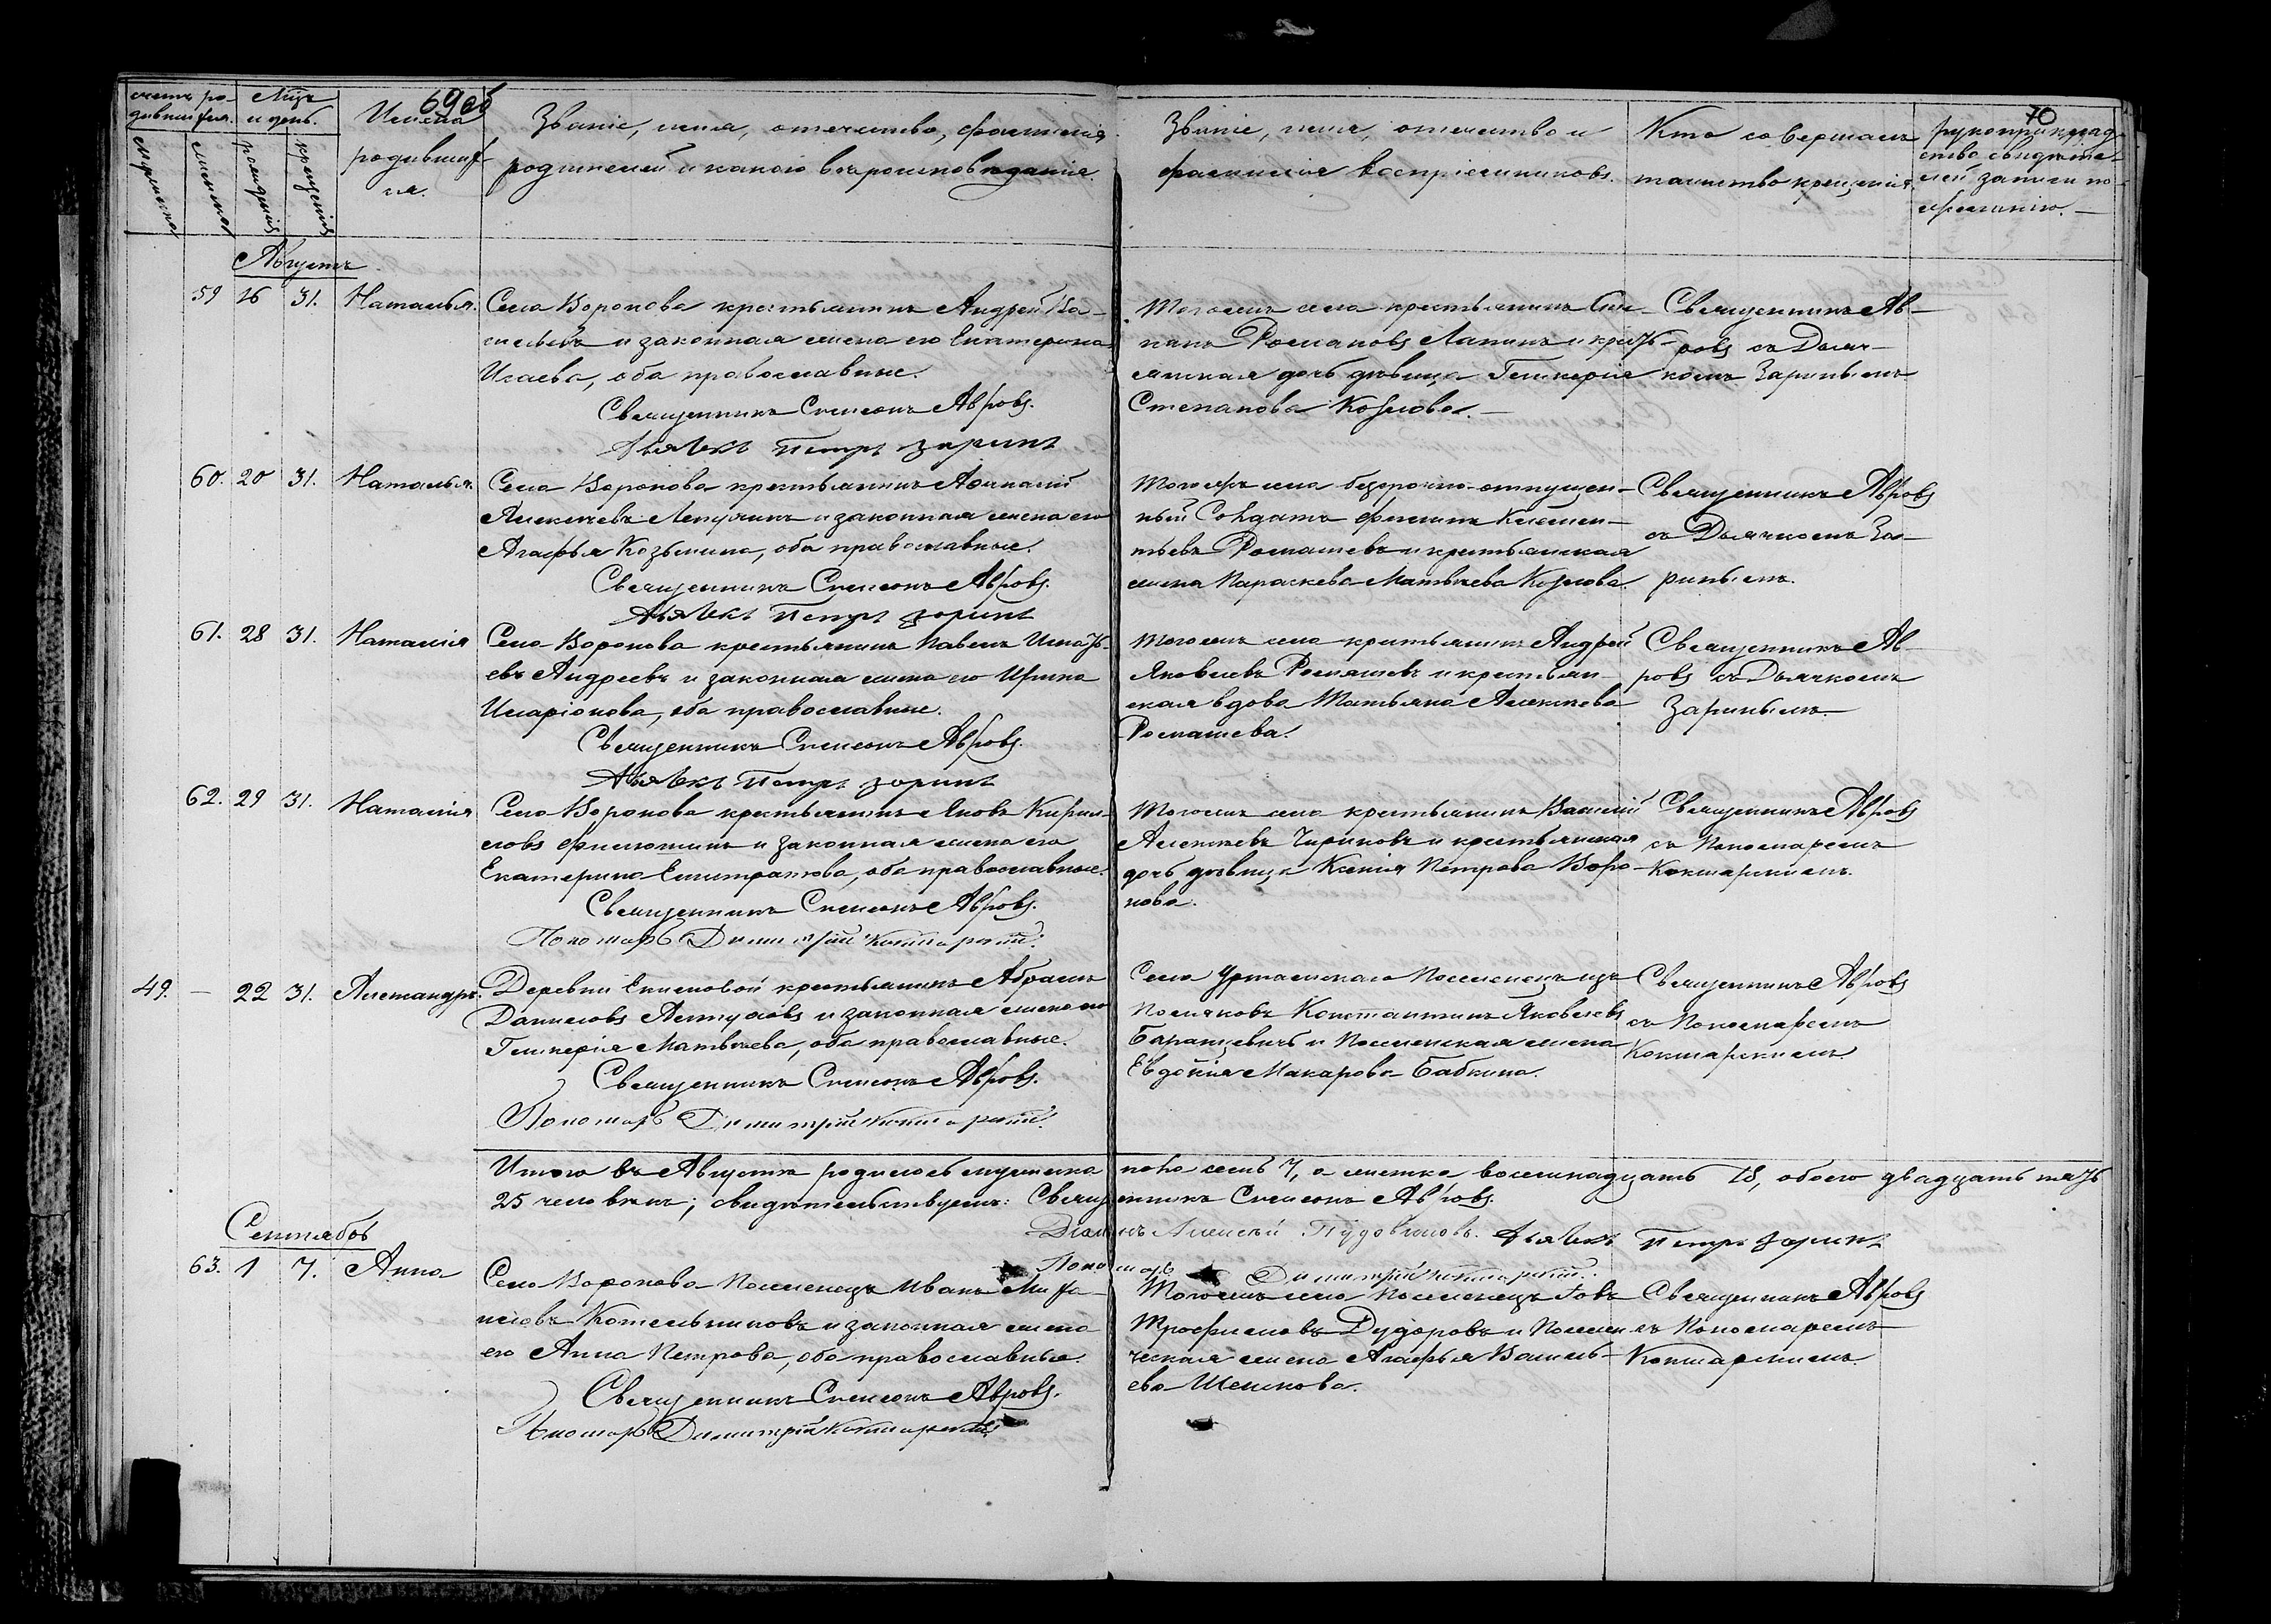 69 об
70
счетъ ро-
дившихся.
Мцъ
и день.
Имена
родивших-
ся.
Званіе, имя, отечество, фамилія
родителей и какого вѣроисповѣданія.
Званіе, имя, отечество и
фамилія воспріемниковъ.
Кто совершалъ
таинство крещенія.
рукоприклад-
ство свидѣте-
лей записи по
желанію.
мужеска
женска
рожденія
крещенія
Августъ
59 16 31. Наталья.
Села Воронова крестьянинъ Андрей Ва-
сильевъ и законная жена его Екатерина
Исаева, оба православные.
Священникъ Симеонъ Авровъ.
Дьячекъ Петръ Заринъ
Тогожъ села крестьянинъ Сте-
панъ Романовъ Лапинъ и кресть-
янская дочь дѣвица Гликерія
Степанова Козлова.
Священникъ Ав-
ровъ съ Дьяч-
комъ Заринымъ
60. 20 31. Наталья.
Села Воронова крестьянинъ Афанасій
Алексѣевъ и законная жена его
Агафья Козьмина, оба православные.
Священникъ Симеонъ Авровъ.
Дьячекъ Петръ Заринъ
Тогожъ села безсрочно-отпущен-
ный Солдатъ Филипъ Климен-
тьевъ Ромашевъ и крестьянская
жена Параскева Матвѣева Козлова.
Священникъ Авровъ
съ Дьячкомъ За-
ринымъ.
61. 28 31. Наталія
Села Воронова крестьянинъ Павелъ Игнать-
евъ Андреевъ и законная жена его Ирина
Иларіонова, оба православные.
Священникъ Симеонъ Авровъ.
Дьячекъ Петръ Заринъ
Тогожъ села крестьянинъ Андрей
Яковлевъ Ромашевъ и крестьян-
ская вдова Татьяна Алексѣева
Ромашева.
Священникъ Ав-
ровъ съ Дьячкомъ
Заринымъ.
62. 29 31. Наталія
Села Воронова крестьянинъ Яковъ Кирил-
ловъ Филютинъ и законная жена его
Екатерина Елистратова, оба православные.
Священникъ Симеонъ Авровъ.
Пономарь Димитрій Кокшарскій.
Тогожъ села крестьянинъ Василій
Алексѣевъ Чириковъ и крестьянская
дочь дѣвица Ксенія Петрова Воро-
нова.
Священникъ Авровъ
съ Пономаремъ
Кокшарскимъ.
49. — 22 31. Александръ.
Деревни Екимовой крестьянинъ Абрамъ
Даниловъ и законная жена его
Гликерія Матвѣева, оба православные.
Священникъ Симеонъ Авровъ.
Пономарь Димитрій Кокшарскій.
Села Уртамскаго Поселенецъ изъ
Поляковъ Константинъ Яковлевъ
Баранцевичъ и Поселенская жена
Евдокія Макарова Бабкина.
Священникъ Авровъ
съ Пономаремъ
Кокшарскимъ.
Итого въ Августѣ родилось мужеска пола семь 7, а женска восемнадцать 18, обоего двадцать пять
25 человѣкъ; свидѣтельствуемъ: Священникъ Симеонъ Авровъ.
Діаконъ Алексѣй Пудовиковъ. Дьячекъ Петръ Заринъ
Пономарь Димитрій Кокшарскій.
Сентябрь
63. 1 7. Анна
Села Воронова Поселенецъ Иванъ Михай-
ловъ Котельниковъ и законная жена
его Анна Петрова, оба православные.
Священникъ Симеонъ Авровъ.
Пономарь Димитрій Кокшарскій
Тогожъ села Поселенецъ Іовъ
Трофимовъ Дудоровъ и Поселен-
ческая жена Агафья Василь-
ева Шешкова.
Священникъ Авровъ
съ Пономаремъ
Кокшарскимъ.